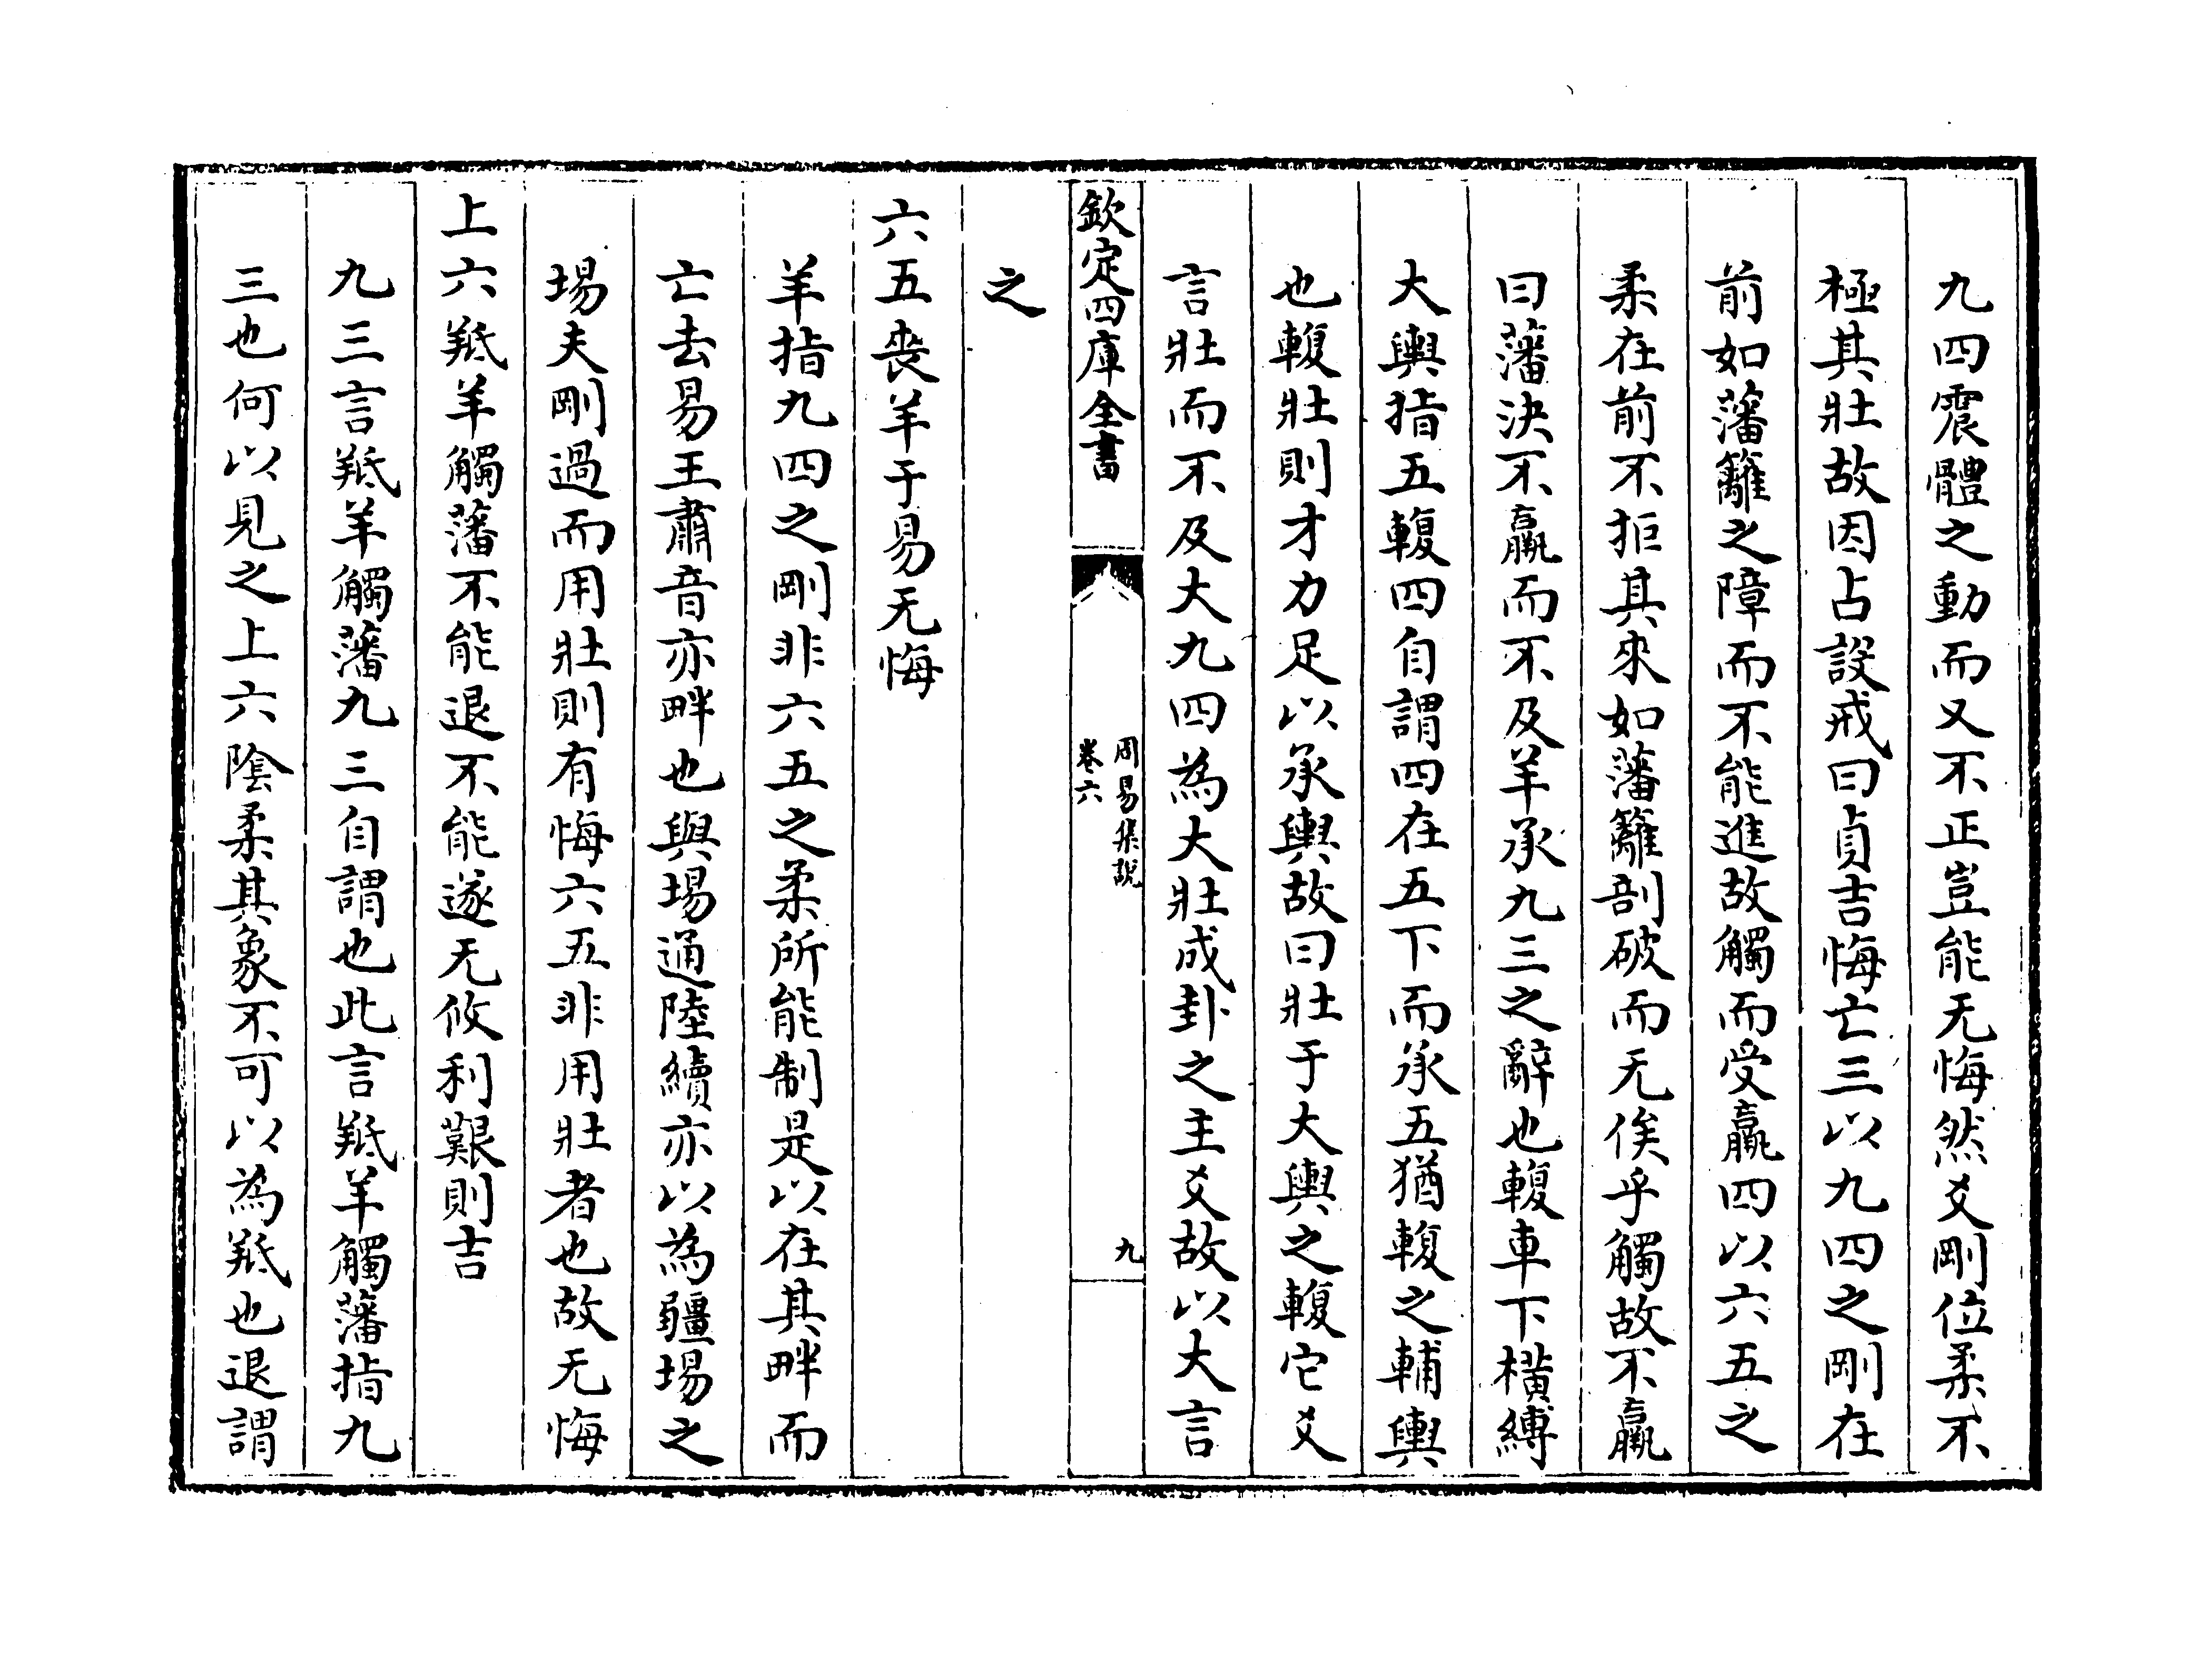 九四震體之動而又不正豈能无悔然爻剛位柔不
極其壯故因占設戒曰貞吉悔亡三以九四之剛在
前如藩籬之障而不能進故觸而受羸四以六五之
柔在前不拒其來如藩籬剖破而无俟乎觸故不羸
曰藩決不羸而不及羊承九三之辭也輹車下橫縛
大輿指五輹四自謂四在五下而承五猶輹之輔輿
也輹壯則才力足以承輿故曰壯于大輿之輹它爻
言壯而不及大九四為大壯成卦之主爻故以大言
欽定四庫全書
周易集說
卷六
九
之
六五喪羊于易无悔
羊指九四之剛非六五之柔所能制是以在其畔而
亡去易王肅音亦畔也與埸通陸績亦以為疆埸之
埸夫剛過而用壯則有悔六五非用壯者也故无悔
上六羝羊觸藩不能退不能遂无攸利艱則吉
九三言羝羊觸藩九三自謂也此言羝羊觸藩指九
三也何以見之上六陰柔其象不可以為羝也退謂